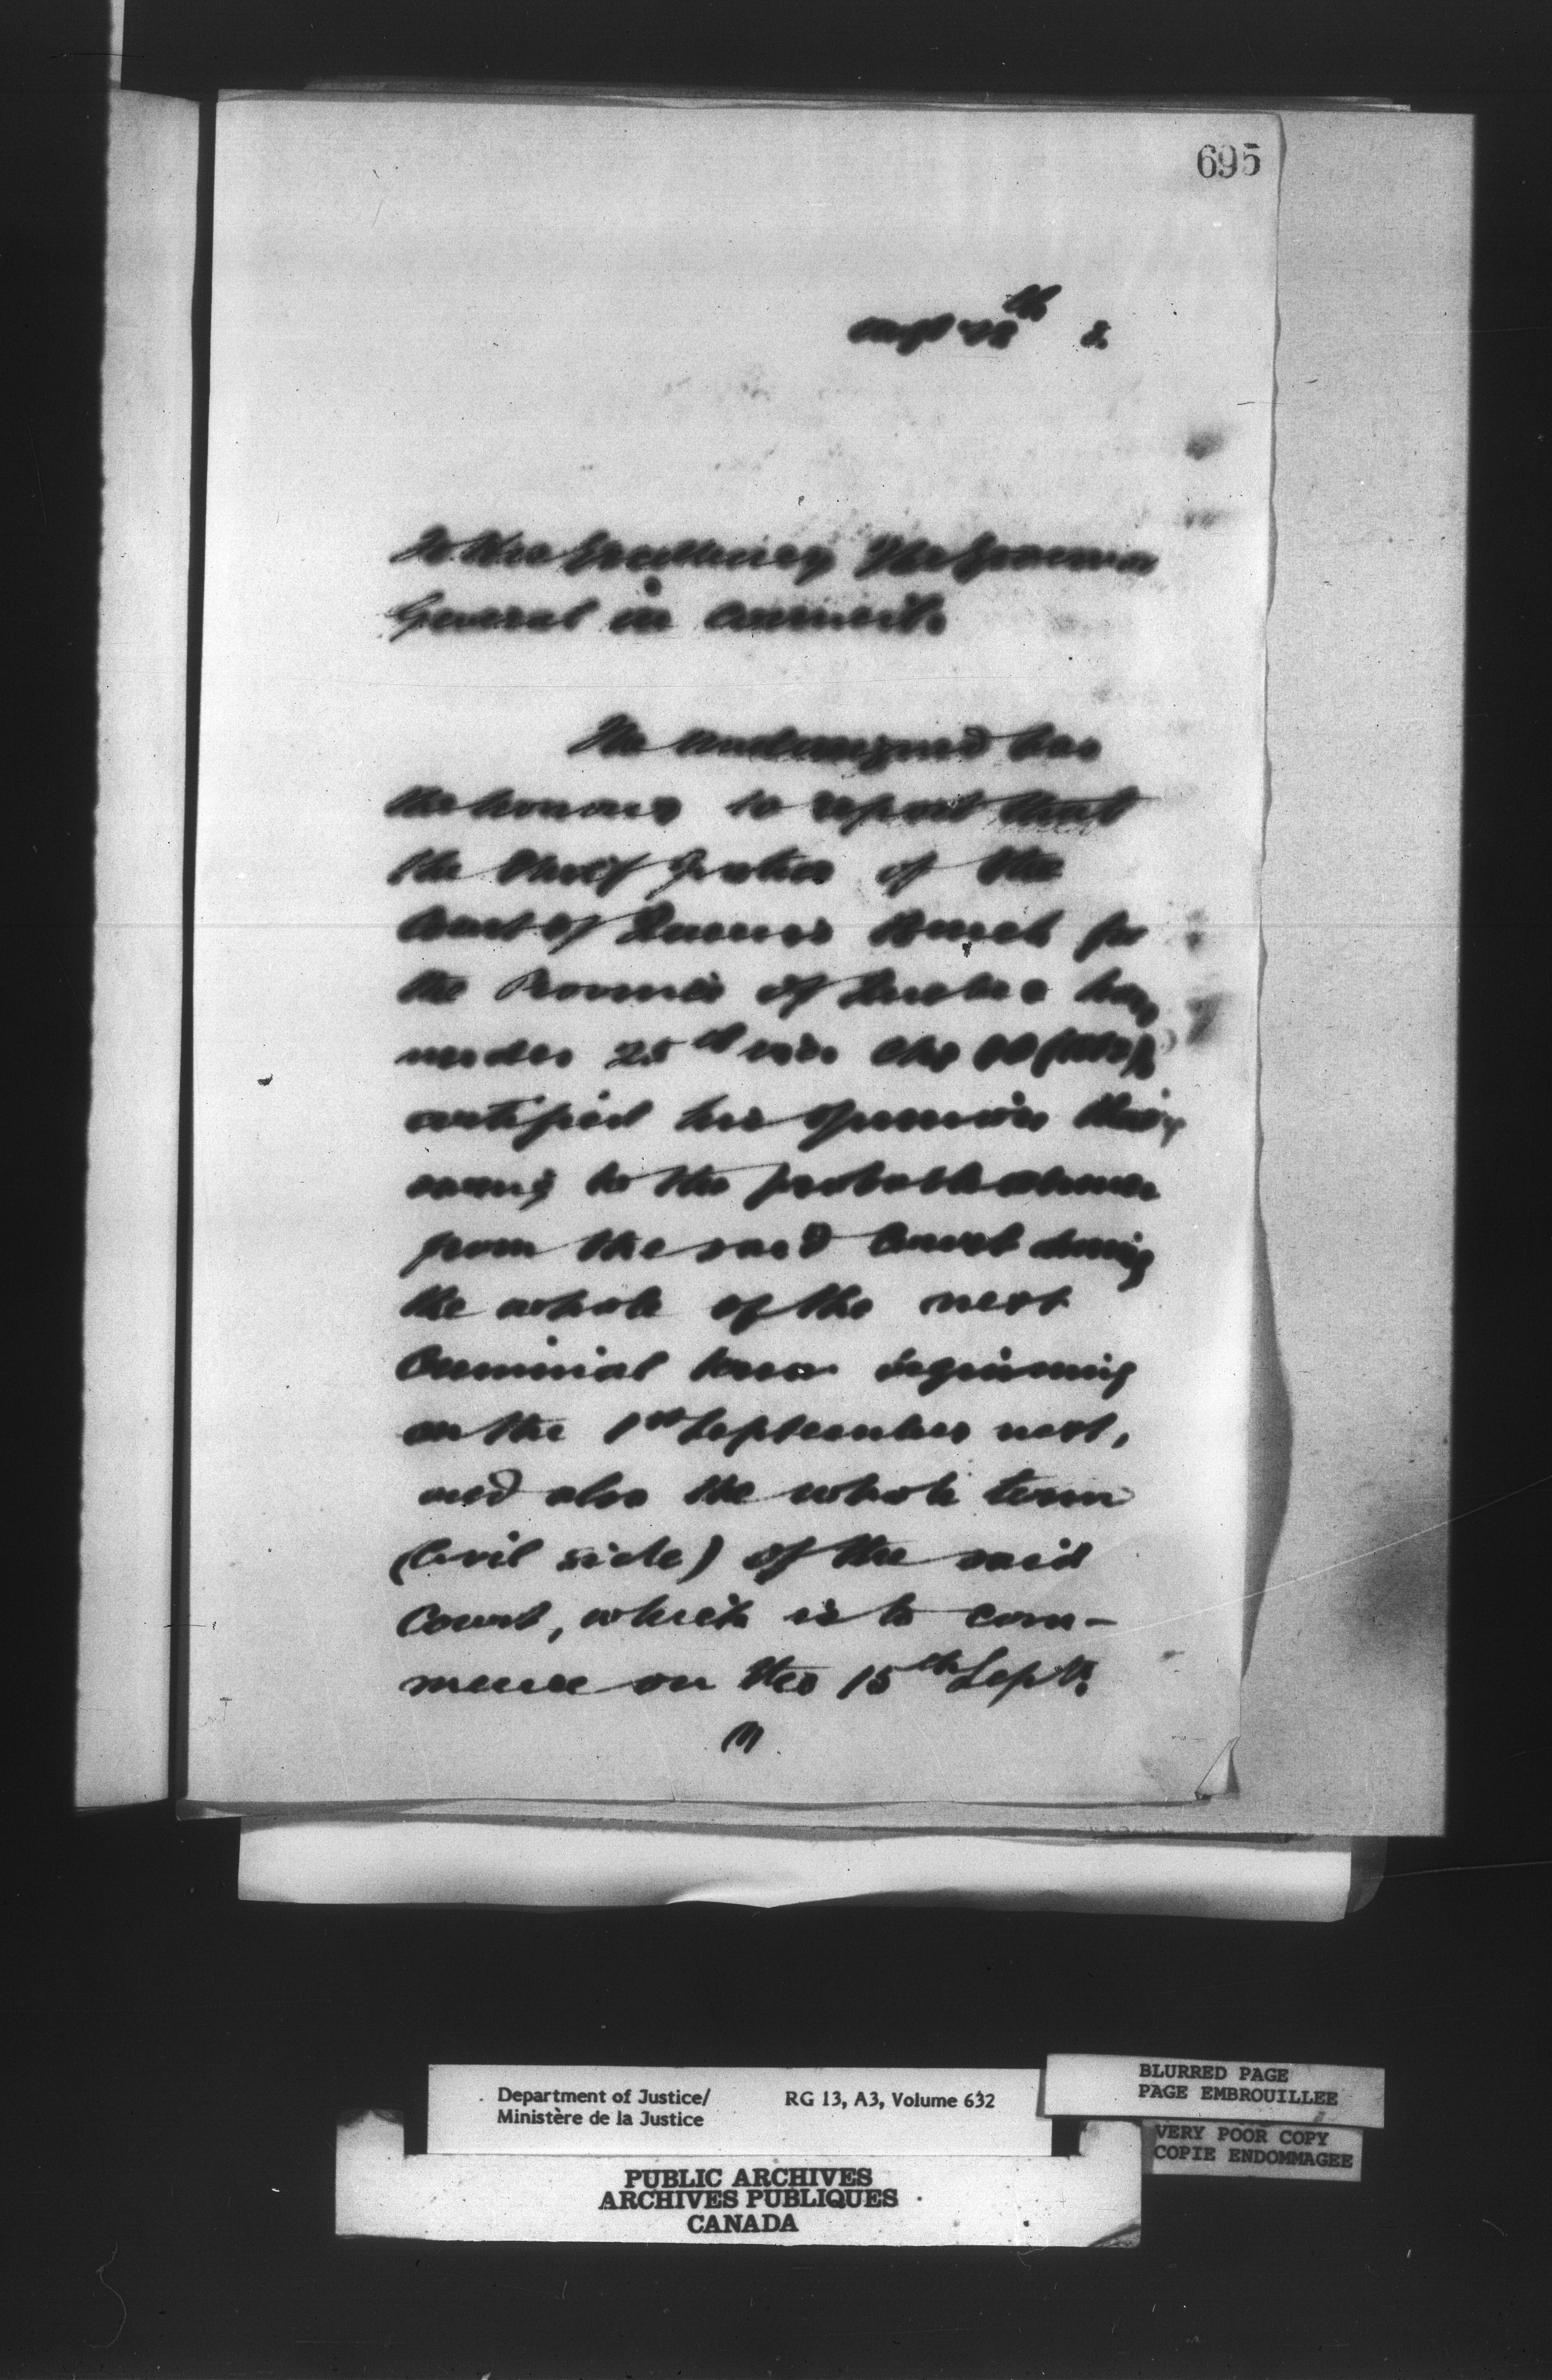 695
th
To His Excellency The Governor
General in Council.
The undersigned has
the honour to report that
the Chief Justice of the
Court of Queen's Bench for
the Province of Quebec has
under 25
certified his opinion that
owing to the probable absence
from the said Court during
the whole of the next
Criminal term beginning
on the 1st September next,
and also the whole term
(Civil side) of the said
Court, which is to com-
mence on the 15th Sept.
Department of Justice/
Ministère de la Justice
RG 13, A3, Volume 632
BLURRED PAGE
PAGE EMBROUILLEE
VERY POOR COPY
COPIE ENDOMMAGEE
PUBLIC ARCHIVES
ARCHIVES PUBLIQUES
CANADA